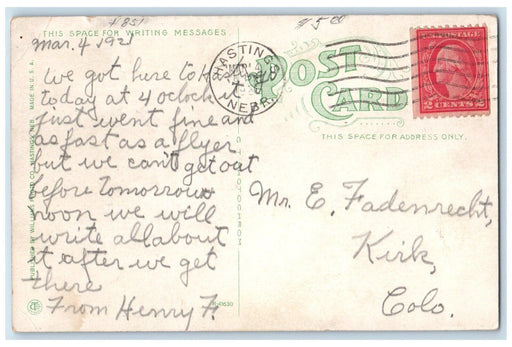 # 851
$ 5 00
THIS SPACE FOR WRITING MESSAGES
Mar. 4 1921
We got here to
today at 4 oclock
just went fine and
as fast as a flyer
but we can't get out
before tomorrow
noon we will
write all about
it after we get
there
From Henry F.
MADE IN U.S.A.
R-41630
HASTINGS
NEBR.
POST
CARD
THIS SPACE FOR ADDRESS ONLY.
2 CENTS 2
Mr. E. Fadenrecht,
Kirk,
Colo.